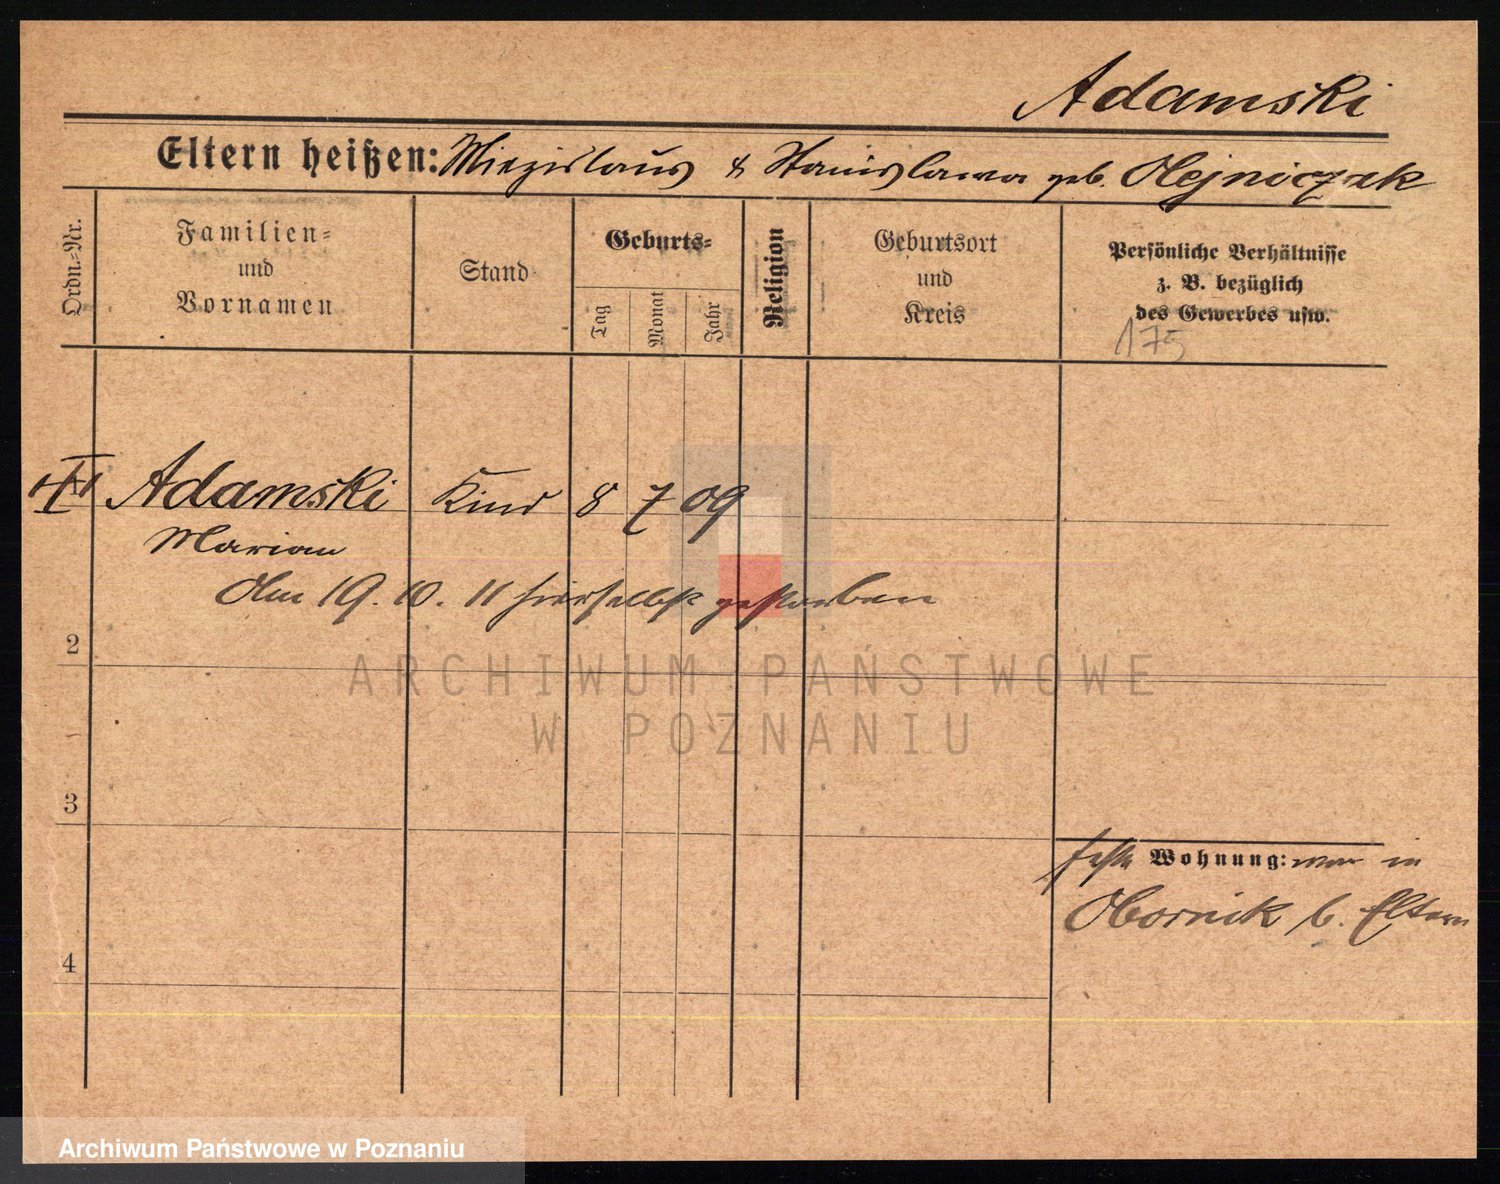 Adamski
Eltern heißen: Miezislaus & Stanislawa geb. Olejniczak
Ordn.-Nr.
Familien-
und
Vornamen
Stand
Geburts-
Tag
Monat
Jahr
Religion
Geburtsort
und
Kreis
Persönliche Verhältnisse
z. B. bezüglich
des Gewerbes usw.
175
Adamski Kind 8 7 09
Marian
Am 19. 10. 11 hierselbst gestorben
2
ARCHIWUM PAŃSTWOWE
W POZNANIU
3
feste Wohnung: war in
Obornik b. Eltern
4
Archiwum Państwowe w Poznaniu